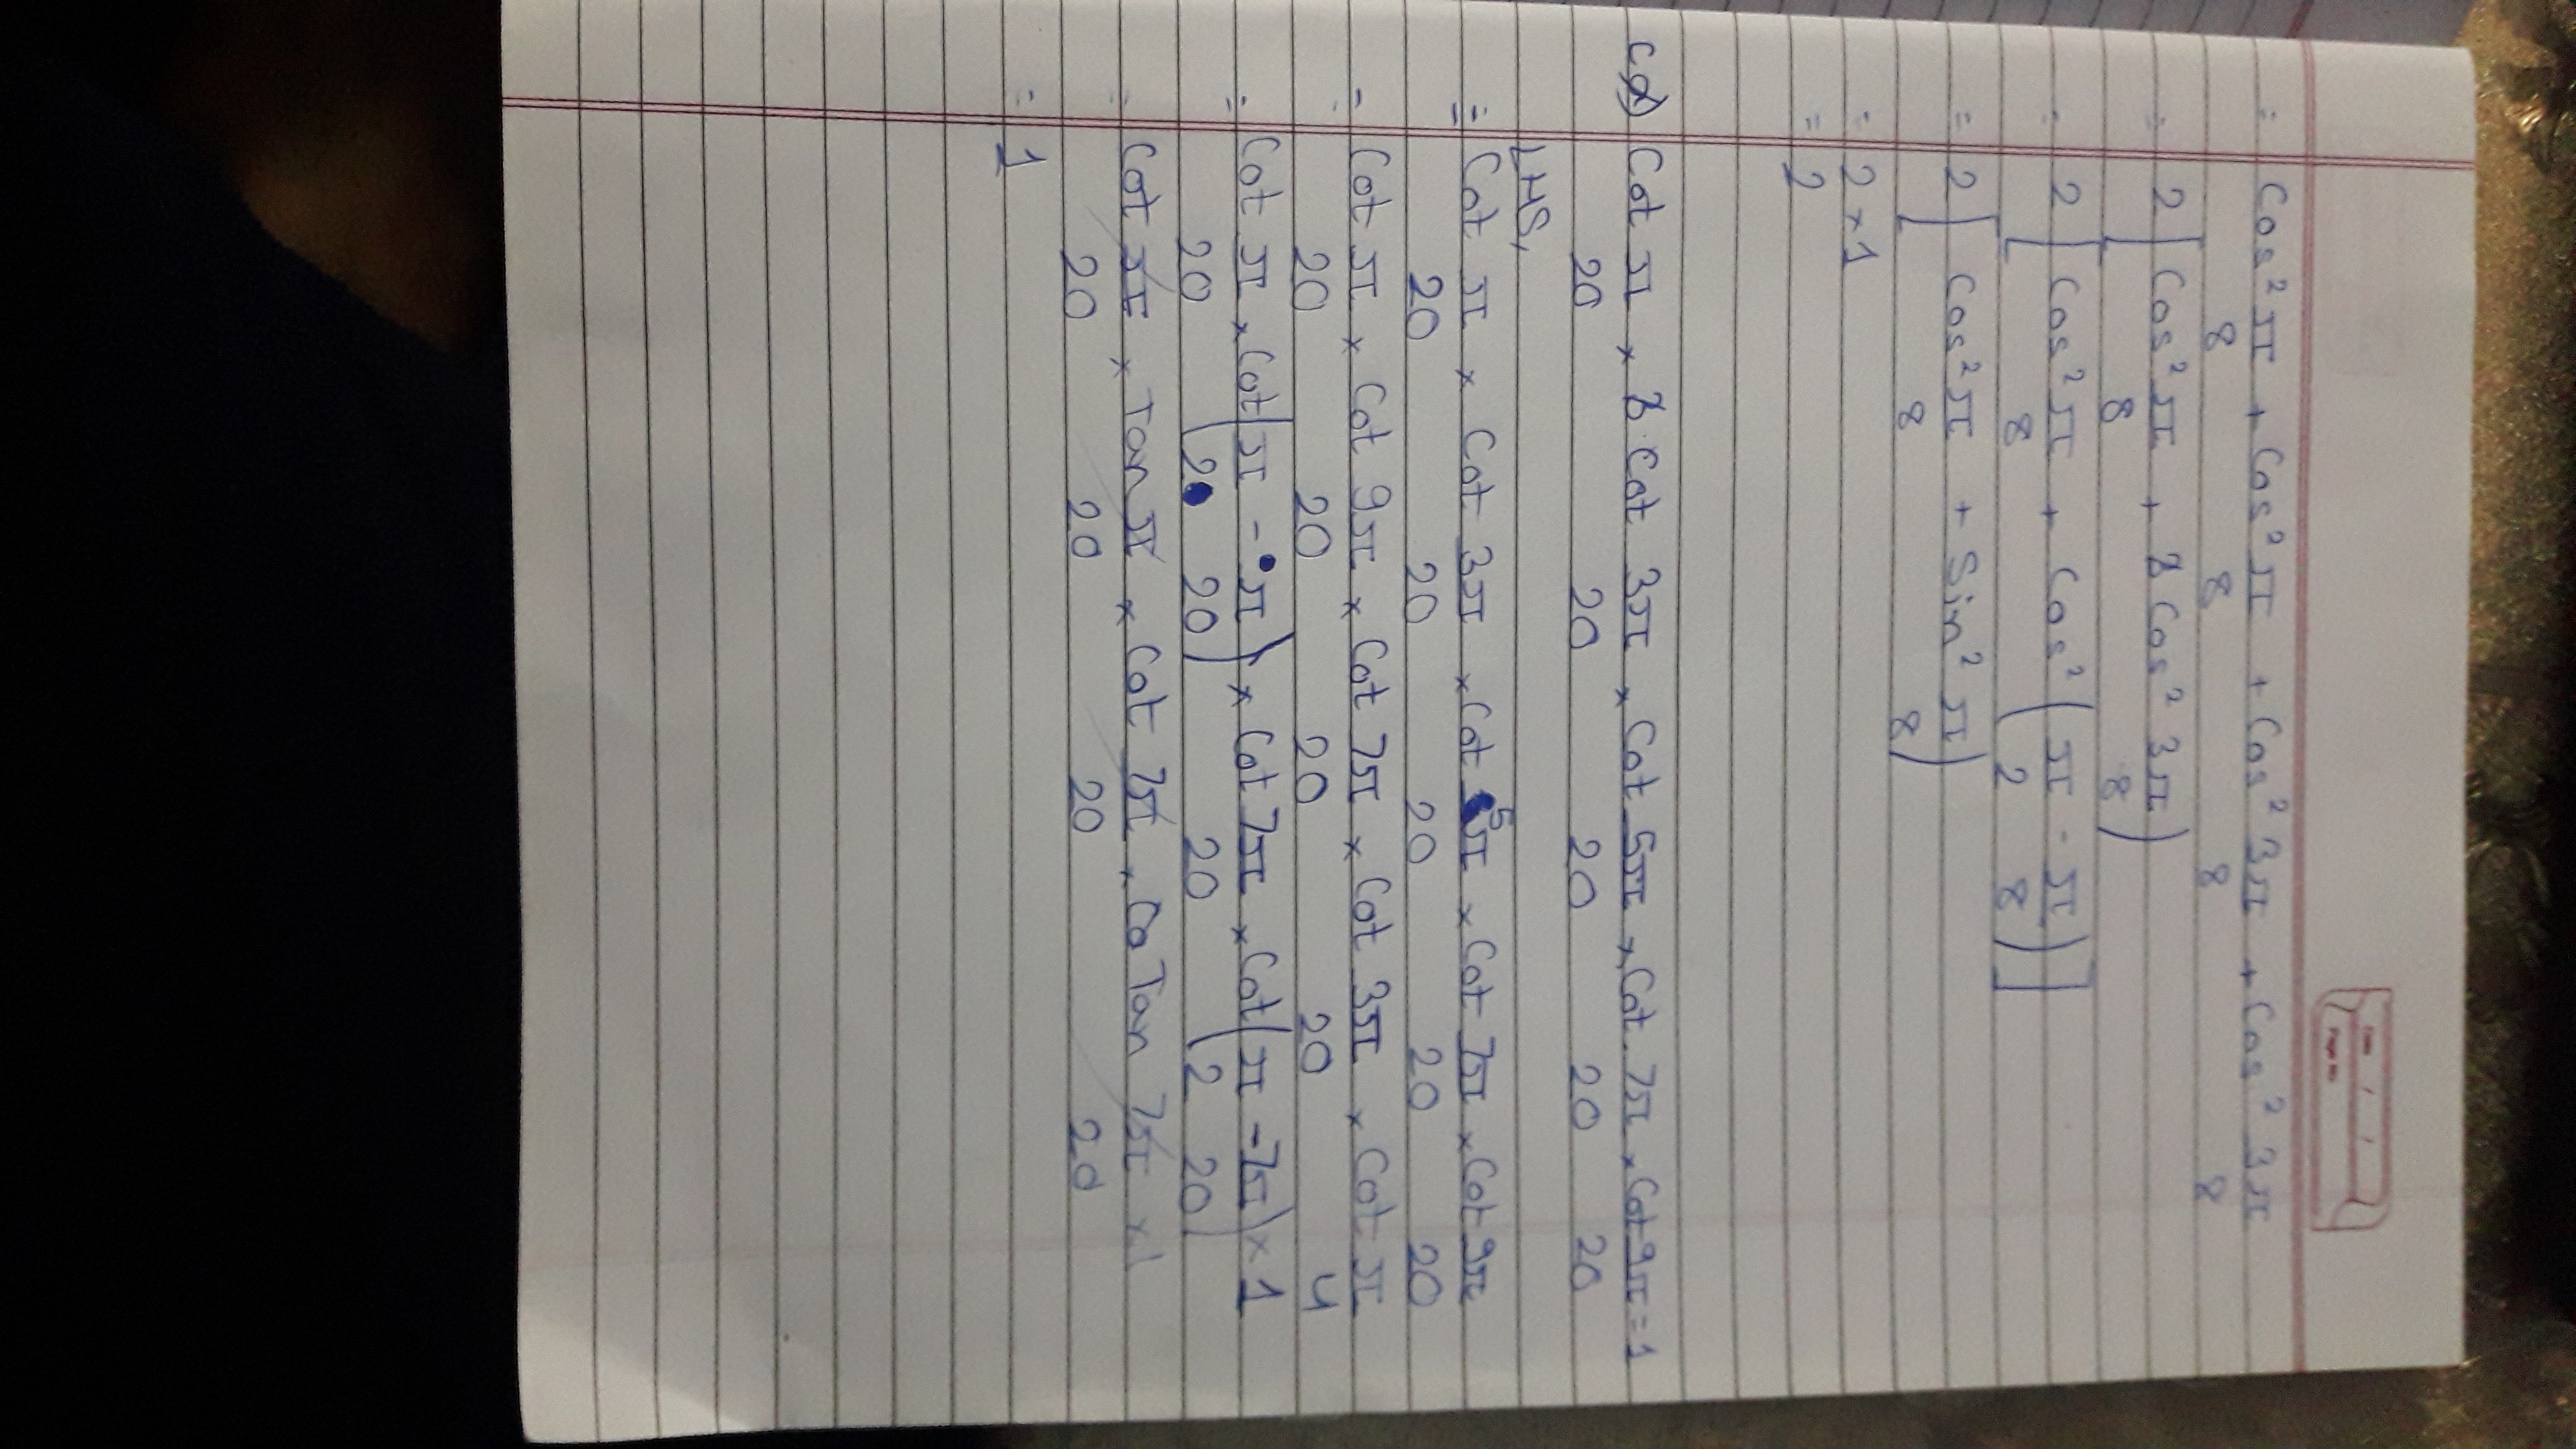 Date / /
Page No.
= Cos² π/8 + Cos² π/8 + Cos² 3π/8 + Cos² 3π/8
= 2 [ Cos² π/8 + Cos² 3π/8 )
= 2 [ Cos² π/8 + Cos² ( π/2 - π/8 ) ]
= 2 [ Cos² π/8 + Sin² π/8 )
= 2 × 1
= 2
Cot π/20 × Cot 3π/20 × Cot 5π/20 × Cot 7π/20 × Cot 9π/20 = 1
LHS,
= Cot π/20 × Cot 3π/20 × Cot 5π/20 × Cot 7π/20 × Cot 9π/20
= Cot π/20 × Cot 9π/20 × Cot 7π/20 × Cot 3π/20 × Cot π/4
= Cot π/20 × Cot ( π/2 - π/20 ) × Cot 7π/20 × Cot ( π/2 - 7π/20 ) × 1
= Cot π/20 × Tan π/20 × Cot 7π/20 × Tan 7π/20 × 1
= 1